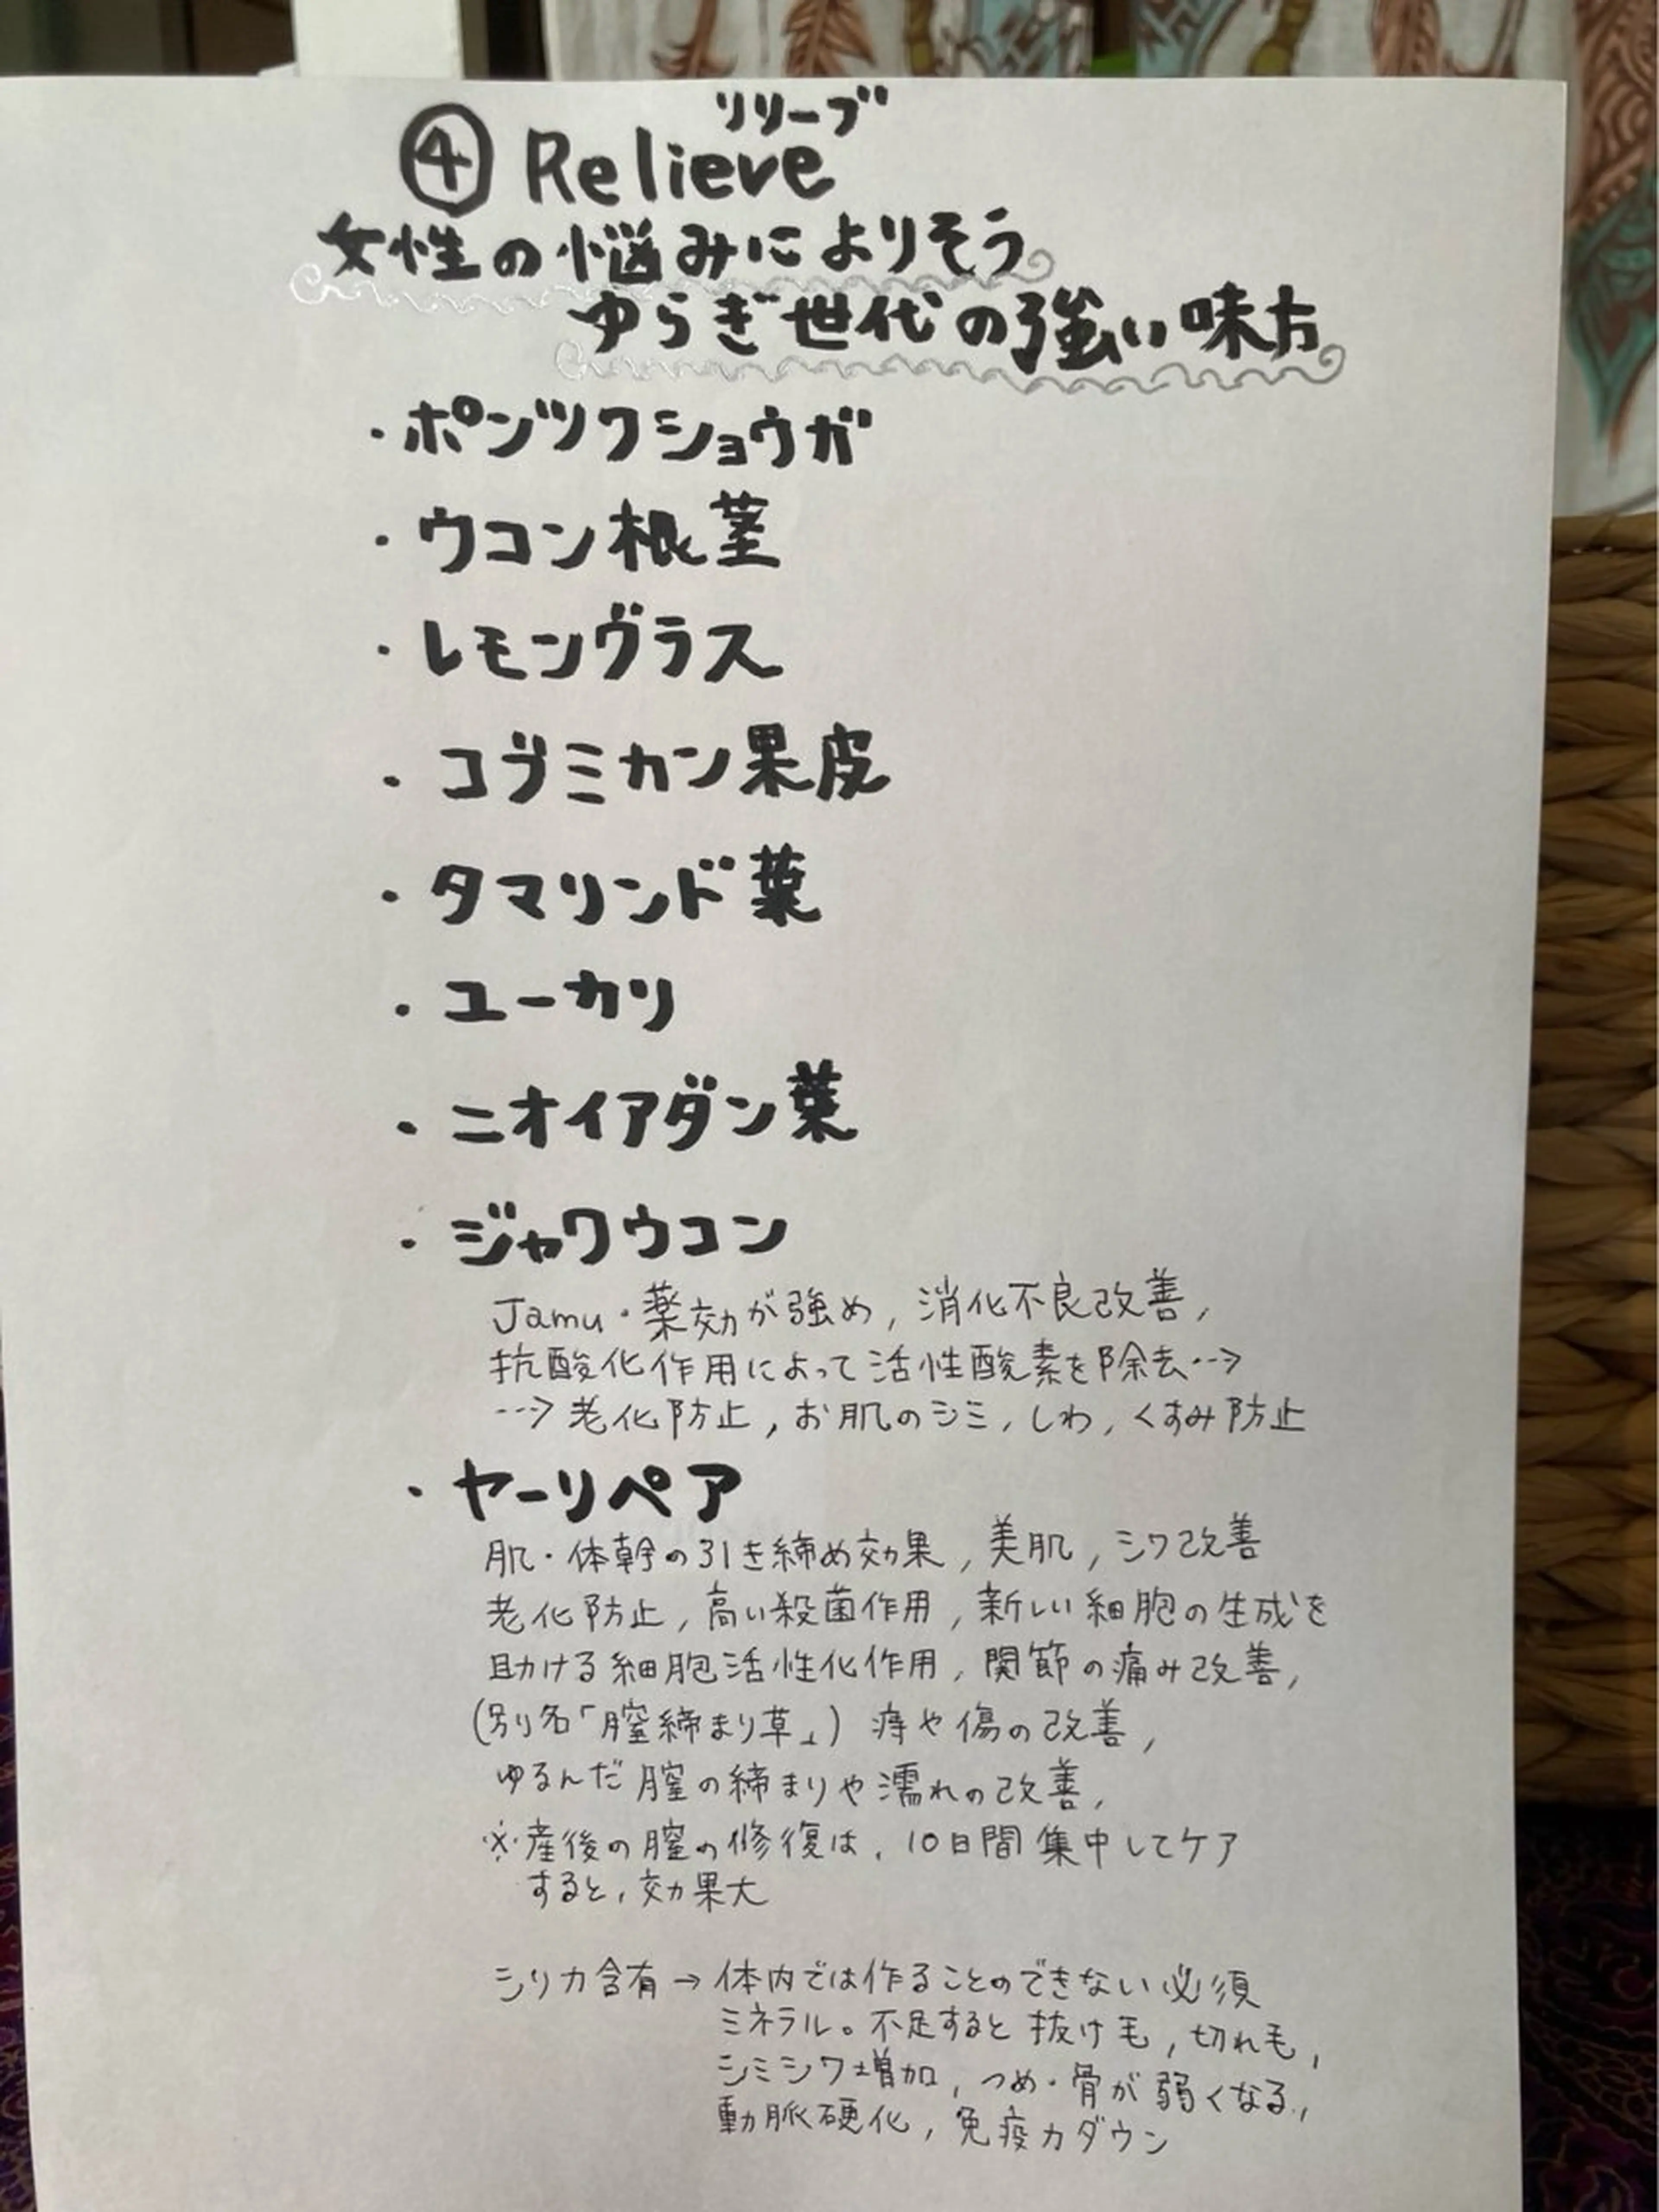 リリーブ
④ Relieve
女性の悩みによりそう
ゆらぎ世代の強い味方
・ポンツクショウガ
・ウコン根茎
・レモングラス
・コブミカン果皮
・タマリンド葉
・ユーカリ
・ニオイアダン葉
・ジャワウコン
Jamu・薬効が強め, 消化不良改善,
抗酸化作用によって活性酸素を除去--→
--→ 老化防止, お肌のシミ, しわ, くすみ防止
・ヤーリペア
肌・体幹の引き締め効果, 美肌, シワ改善
老化防止, 高い殺菌作用, 新しい細胞の生成を
助ける細胞活性化作用, 関節の痛み改善,
(別名「膣締まり草」) 痔や傷の改善,
ゆるんだ膣の締まりや濡れの改善,
※産後の膣の修復は, 10日間集中してケア
すると, 効果大
シリカ含有→体内では作ることのできない必須
ミネラル。不足すると抜け毛, 切れ毛,
シミシワ増加, つめ・骨が弱くなる,
動脈硬化, 免疫力ダウン